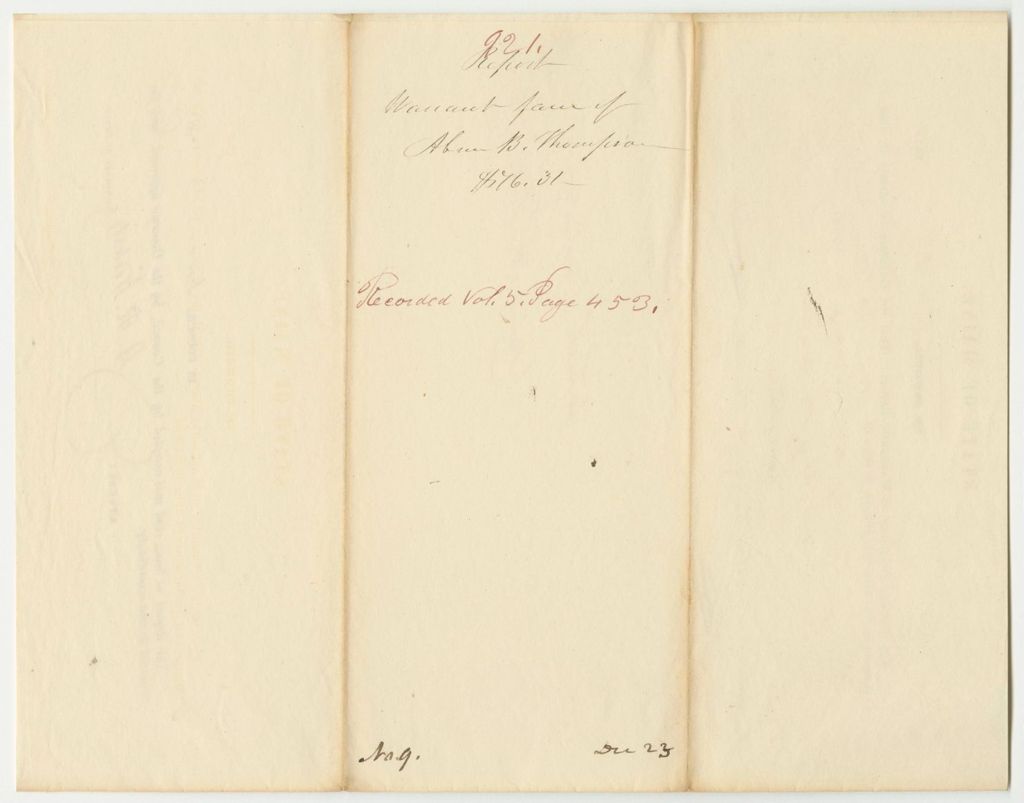 921.
Report
Warrant favr of
Abner B. Thompson
$176.31
Recorded Vol. 5. Page 453.
No. 9.
Dec 23